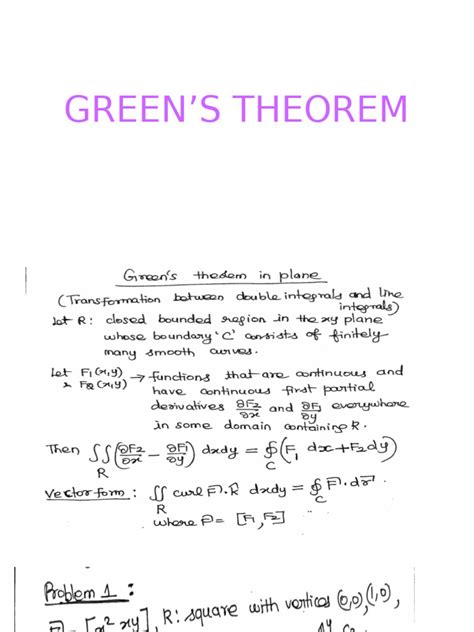 GREEN’S THEOREM
Green's theorem in plane
(Transformation between double integrals and line
integrals)
Let R: closed bounded region in the xy plane
whose boundary 'C' consists of finitely
many smooth curves.
Let F₁(x,y)
& F₂(x,y) → functions that are continuous and
have continuous first partial
derivatives ∂F₂/∂x and ∂F₁/∂y everywhere
in some domain containing R.
Then ∬_R (∂F₂/∂x − ∂F₁/∂y) dxdy = ∮_C (F₁ dx + F₂ dy)
Vector form: ∬_R curl F⃗ . k⃗ dxdy = ∮_C F⃗ . dr⃗
where F⃗ = [F₁, F₂]
Problem 1:
F⃗ = [x² xy], R: square with vertices (0,0), (1,0),